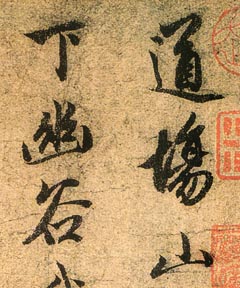 道場山
下幽谷